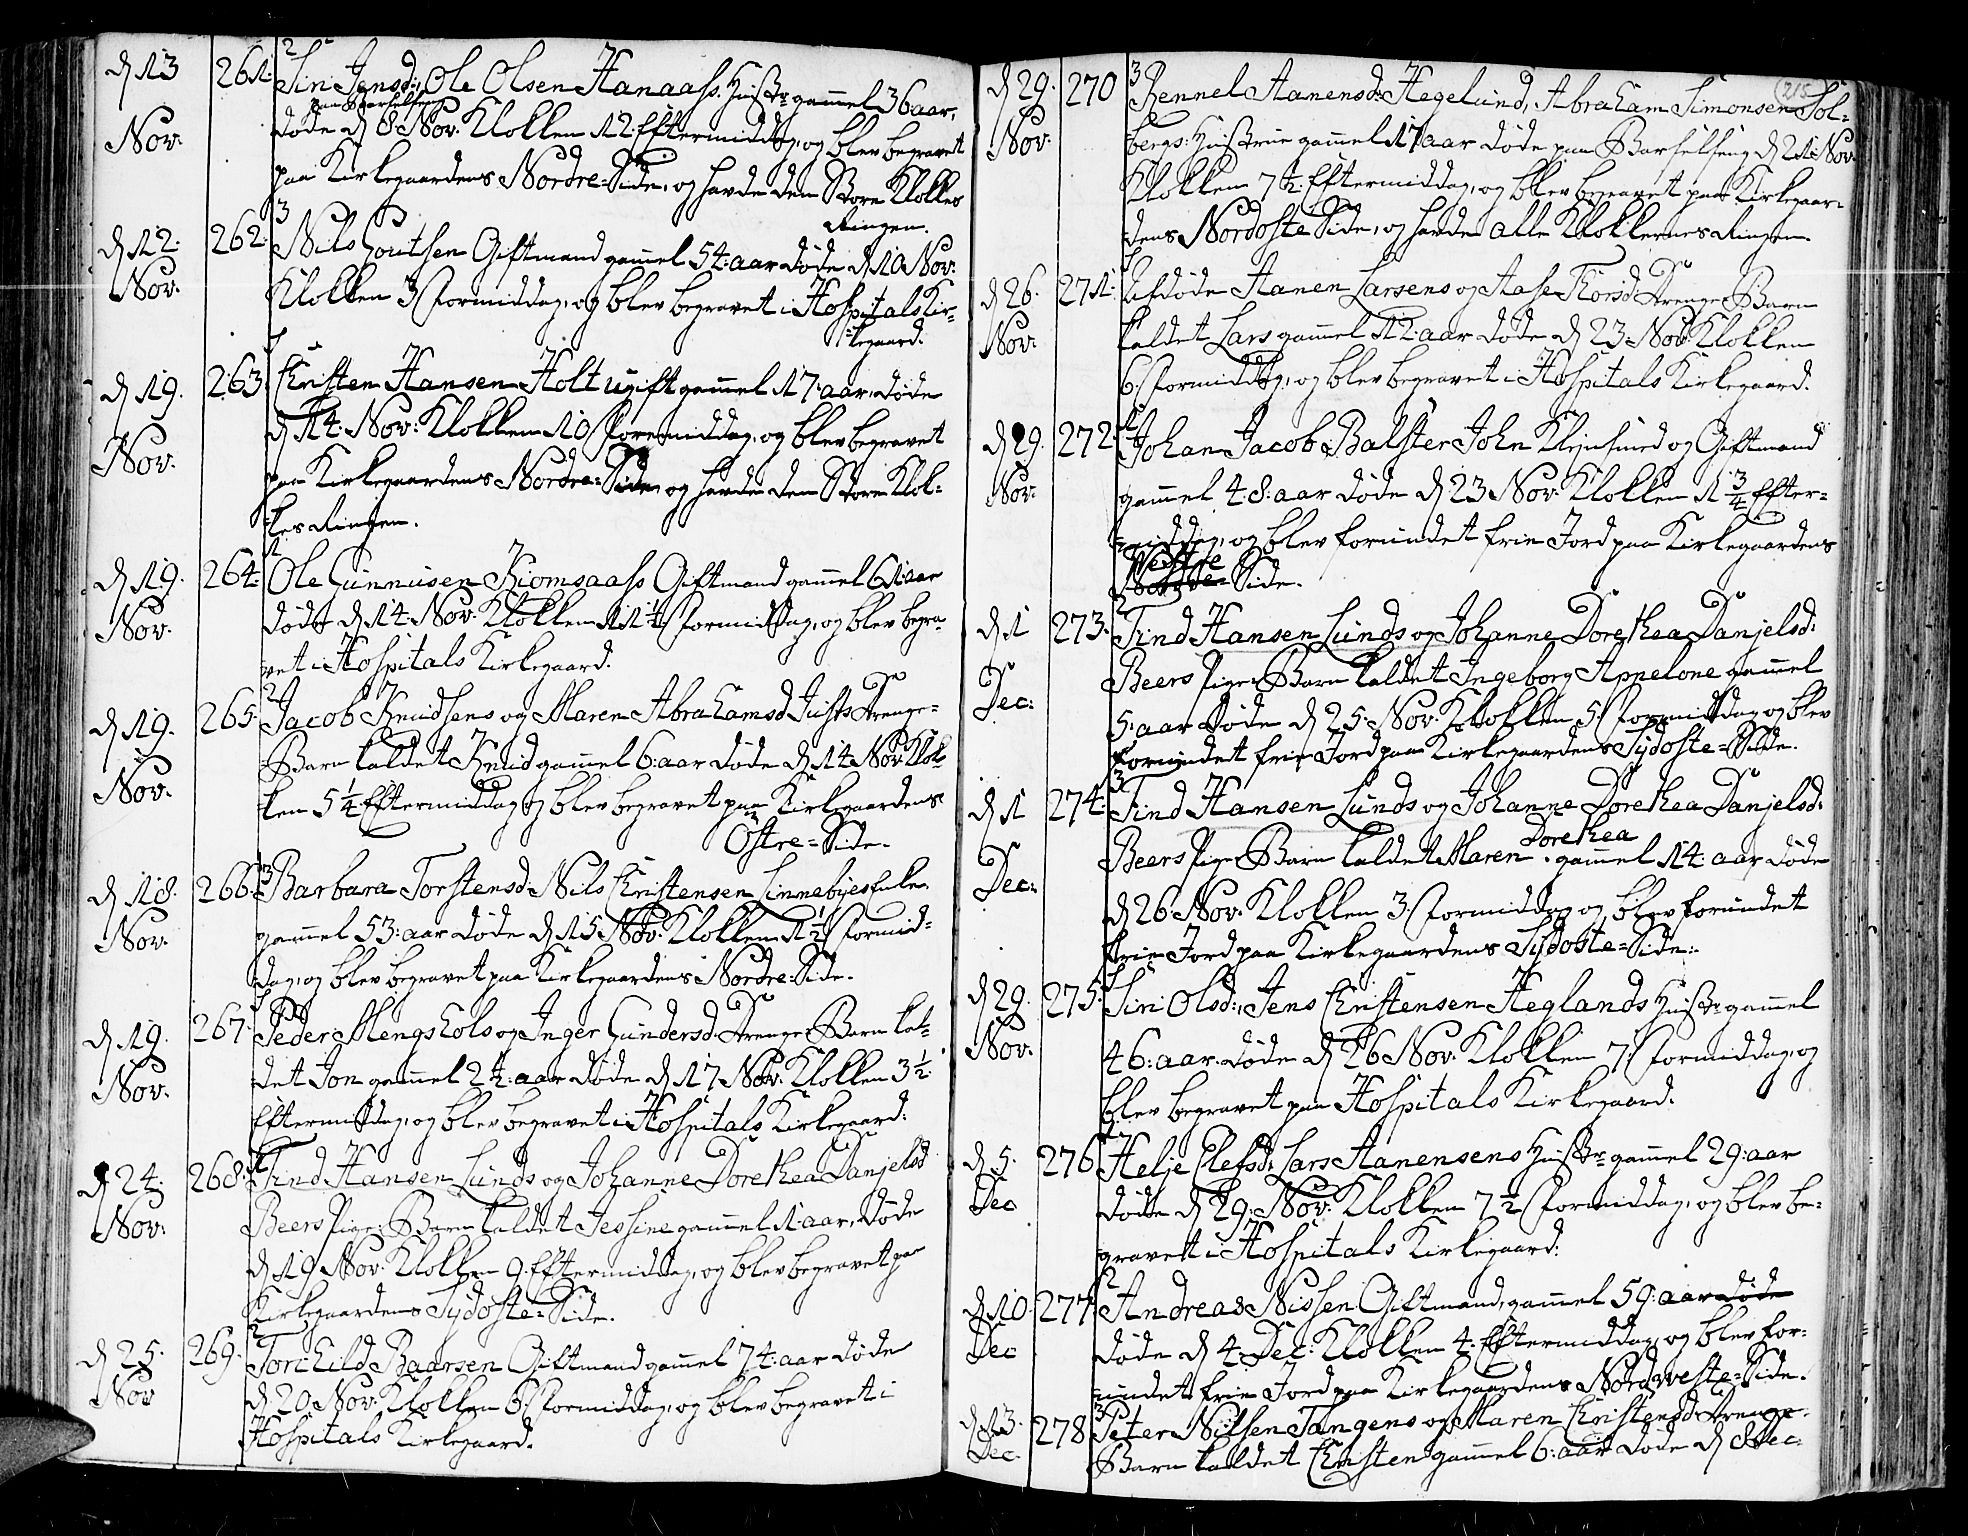 d 13 Nov. 261. 2 Siri Jensd: Ole Olsen Hanaass. Hustr: gammel 36 aar,
paa Barselseng
døde d 8 Nov: Klokken 12. Eftermiddag, og blev begravet
paa Kirkegaardens Nordre=Side, og havde den Store Klokkes
Ringen.
d 12. Nov. 262. 3 Nils Goutsen Giftmand gammel 54: aar døde d 10 Nov:
Klokken 3 Formiddag, og blev begravet i Hospitals Kir=
=kegaard.
d 19. Nov. 263. Christen Hansen Holt ugift gammel 17. aar, døde
d 14. Nov: Klokken 10 Formiddag, og blev begravet
paa Kirkegaardens Nordre=Side, og havde den Store Klok=
=kes Ringen.
d 19. Nov. 264. 1 Ole Gunnusen Kiomsaass Giftmand gammel 61 aar
døde d 14. Nov. Klokken 11 Formiddag, og blev begra=
vet i Hospitals Kirkegaard.
d 19. Nov. 265. 2 Jacob Knudsens og Maren Abrahamsd Justs Drenge=
Barn kaldet Knud gammel 6: aar døde d 14 Nov. Klok=
ken 5 1/4 Eftermiddag og blev begravet paa Kirkegaardens
Østre=Side.
d 18. Nov. 266. 3 Barbara Torstensd: Nils Christensen Linnebyes Enke
gammel 53: aar døde d 15 Nov: Klokken 1 1/2 Formid=
dag, og blev begravet paa Kirkegaardens Nordre=Side.
d 19. Nov. 267. Peder Mengshols og Inger Gundersd: Drenge Barn kal=
det Jon gammel 2 1/2: aar døde d 17 Nov: Klokken 3 1/2.
Eftermiddag, og blev begravet i Hospitals Kirkegaard.
d 24. Nov. 268. 1 Find Hansen Lunds og Johanne Dorethea Danjelsd
Beers Pige=Barn kaldet Jessine gammel 1 aar, døde
d 19 Nov: Klokken 9. Eftermiddag, og blev begravet paa
Kirkegaardens Sydoste=Side.
d 25. Nov 269. 2 Torchild Baarsen Giftmand gammel 74: aar døde
d 20 Nov. Klokken 6. Formiddag, og blev begravet i
Hospitals Kirkegaard.
215
d 29. Nov. 270 3 Rennel Aanensd: Hegelund, Abraham Simonsen Sol=
bergs: Hustrue gammel 17 aar døde paa Barselseng d 21 Nov
Klokken 7 1/2. Eftermiddag, og blev begravet paa Kirkegaar=
dens Nordoste Side, og havde alle Klokkernes Ringen.
d 26. Nov. 271. Afdøde Aanen Larsens og Aase Thorsd: Drenge Barn
kaldet Lars gammel 12: aar døde d 23 Nov: Klokken
6. Formiddag, og blev begravet i Hospitals Kirkegaard.
d 29. Nov. 272. Johan Jacob Balster John Klejnsmed og Giftmand
gammel 48: aar døde d 23 Nov: Klokken 1 3/4 Efter=
=middag, og blev forundet frie Jord paa Kirkegaardens
Vestre
Side.
d 1 Dec: 273. 2 Find Hansen Lunds og Johanne Dorethea Danjelsd:
Beers Pige=Barn kaldet Ingeborg Appelone gammel
5. aar døde d 25. Nov. Klokken 5. Formiddag og blev
forundet frie Jord paa Kirkegaardens Sydoste=Side.
d 1 Dec: 274. 3 Find Hansen Lunds og Johanne Dorethea Danjelsd:
Dorethea
Beers Pige=Barn kaldet Maren gammel 14: aar døde
d 26 Nov. Klokken 3. Formiddag og blev forundet
frie Jord paa Kirkegaardens Sydoste=Side.
d 29. Nov. 275. Siri Olsd:, Jens Christensen Heglands Hustr: gammel
46: aar døde d 26 Nov. Klokken 7. Formiddag, og
blev begravet paa Hospitals Kirkegaard.
d 5. Dec 276. Helje Elefsd, Lars Aanensens Hustr: gammel 29: aar
døde d 29. Nov. Klokken 7 1/2 Formiddag, og blev be=
gravet i Hospitals Kirkegaard.
d 10. Dec 277. 2 Andreas Nissen Giftmand, gammel 59: aar døde
døde d 4. Dec: Klokken 4. Eftermiddag, og blev for=
=undet frie Jord paa Kirkegaardens Nordveste=Side.
d 13. Dec. 278. 3 Peter Nilsen Tangens og Maren Christensd: Drenge=
Barn kaldet Christen gammel 6: aar døde d 8 Dec: